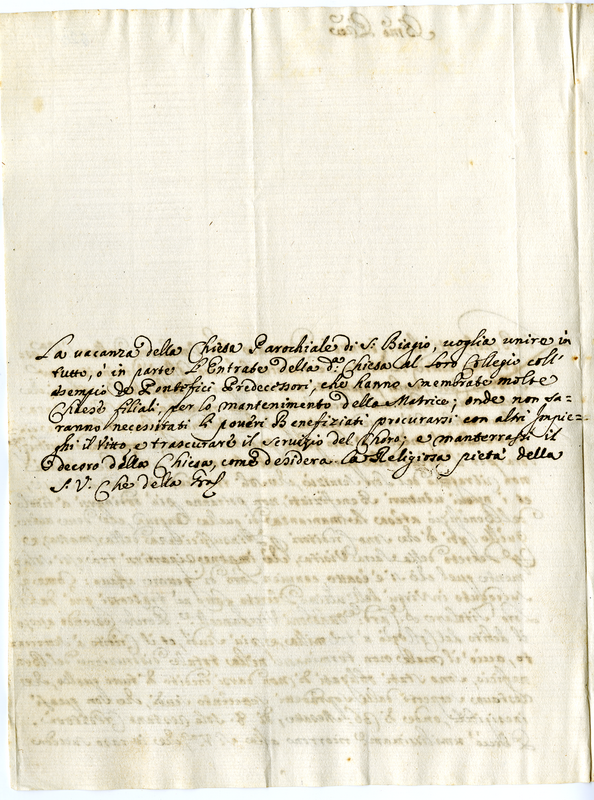 La vacanza della Chiesa Parochiale di S. Biagio, voglia unire in
tutto, ò in parte l'Entrate della d.ª Chiesa al loro Collegio coll'
esempio de Pontefici Predecessori, che hanno smembrate molte
Chiese filiali, per lo mantenimento della Matrice; onde non sa-
ranno necessitati li poveri Benefiziati procurarsi con altri Impie-
ghi il Vitto, e trascurare il servizio del Choro; e manterrassi il
decoro della Chiesa, come desidera la Religiosa pietà della
S. V. Che della